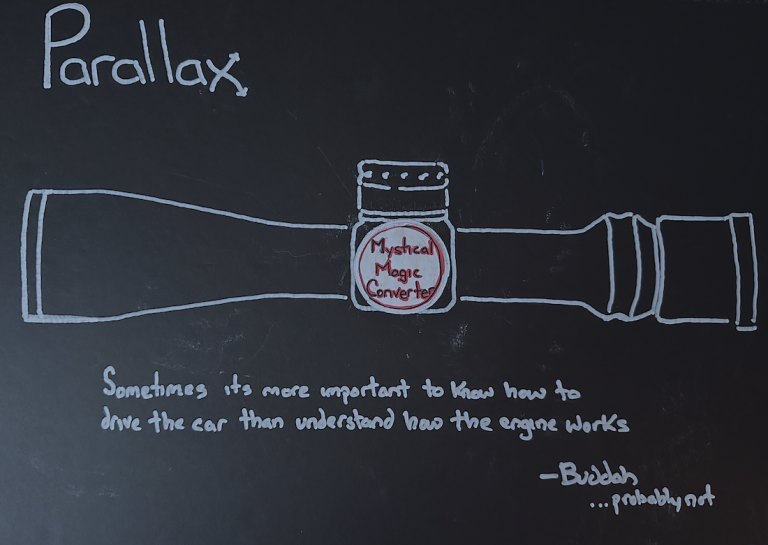 Parallax
Mystical
Magic
Converter
Sometimes its more important to know how to
drive the car than understand how the engine works
—Buddah
...probably not